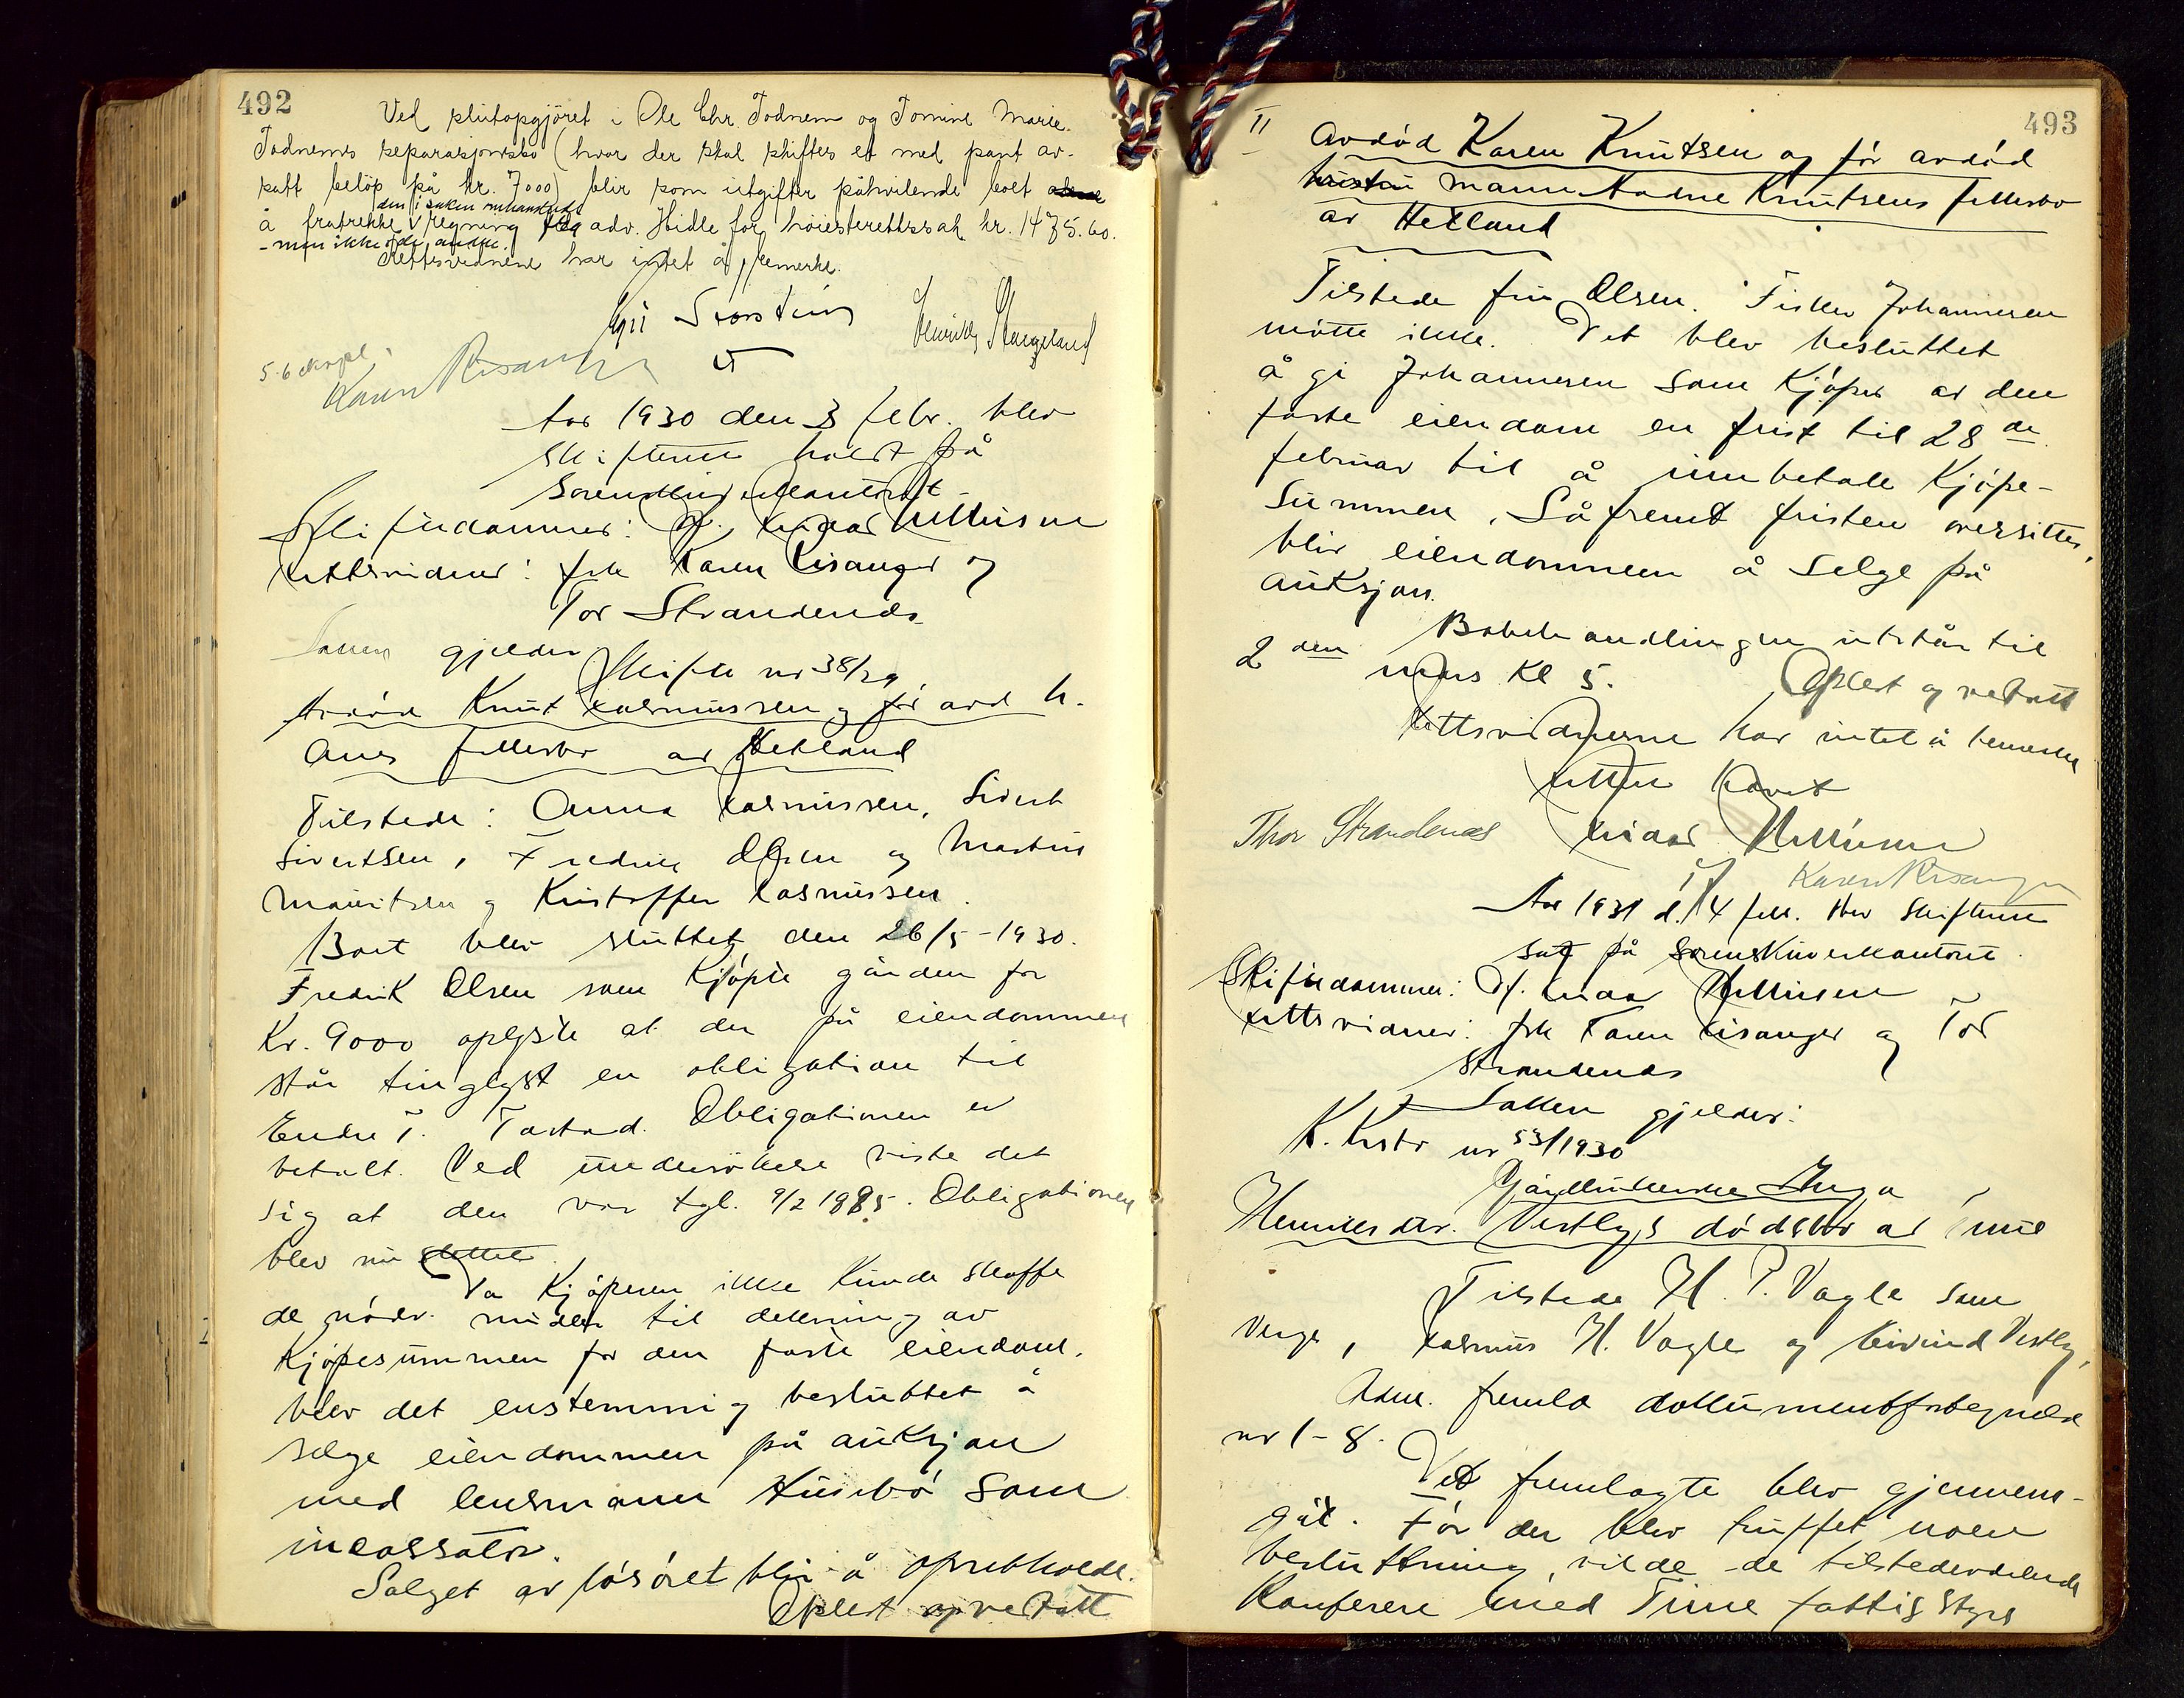 492
Ved sluttopgjöret i Ole Chr. Todnem og Tomine Marie
Todnems separasjonsbo (hvor der skal skiftes et med pant av-
satt belöp på kr. 7000) blir som utgifter påhvilende boet
den i saken omhandlede
å fratrekke regning fra adv. Hidle for höiesterettssak kr. 1475.60.
- men ikke de andre.
Rettsvidnene har intet å bemerke.
Henrik Stangeland
Karen Risanger
Aar 1930 den 3 febr. blev
skifterett holdt på
Sorenskriverkontoret
Skiftedommer:
Rettsvidner: frk Karen Risanger og
Tor Strandenæs
Saken gjelder
Skifte nr 38/29
Avdöd Knut Rasmussen og för avd h.
Anes fellesbo av Hetland
Tilstede: Anna Rasmussen, Sivert
Sivertsen, Fredrik Olsen og Martin
Mauritsen og Kristoffer Rasmussen.
Boet blev sluttet den 26/5-1930.
Fredrik Olsen som kjöpte gården for
Kr. 9000 oplyste at der på eiendommen
står tinglyst en obligation til
Endre T. Tastad. Obligationen er
betalt. Ved undersökelse viste det
sig at den var tgl. 9/2 1885. Obligationen
blev nu slettet.
Da kjöperen ikke kunde skaffe
de nödv. midler til dekning av
kjöpesummen for den faste eiendom,
blev det enstemmig besluttet å
selge eiendommen på auksjon
med lensmann Husebö som
incassator.
Salget av lösöret blir å oprettholde.
Oplest og vedtatt
493
II
Avdöd Karen Knutsen og för avdöd
hustru mann Aadne Knutsens fellesbo
av Hetland
Tilstede fru Olsen. Fisker Johannesen
mötte ikke. Det blev besluttet
å gi Johannesen som kjöper av den
faste eiendom en frist til 28 de
februar til å innbetale kjöpe-
summen. Såfremt fristen oversittes,
blir eiendommen å selge på
auksjon.
Bobehandlingen utstår til
2 den mars Kl 5.
Oplest og vedtatt
Rettsvidnerne har intet å bemerke
Retten hævet
Thor Strandenæs
Karen Risanger
Aar 1931 d. 14 febr. blev skifterett
satt på Sorenskriverkontoret.
Skiftedommer:
Rettsvidner: frk Karen Risanger og Tor
Strandenæs
Saken gjelder:
K. Kistr nr 53/1930
Gårdbrukerske Inga
Henriksdtr. Vestlys dödsbo av Time
Tilstede H. P. Vagle som
verge, Rasmus H. Vagle og Eivind Vestly,
Adm. fremla dokumentfortegnelse
nr 1-8.
Det fremlagte blev gjennem-
gåt. För der blev truffet noen
beslutning, vilde de tilstedeværende
konferere med Time fattigstyre